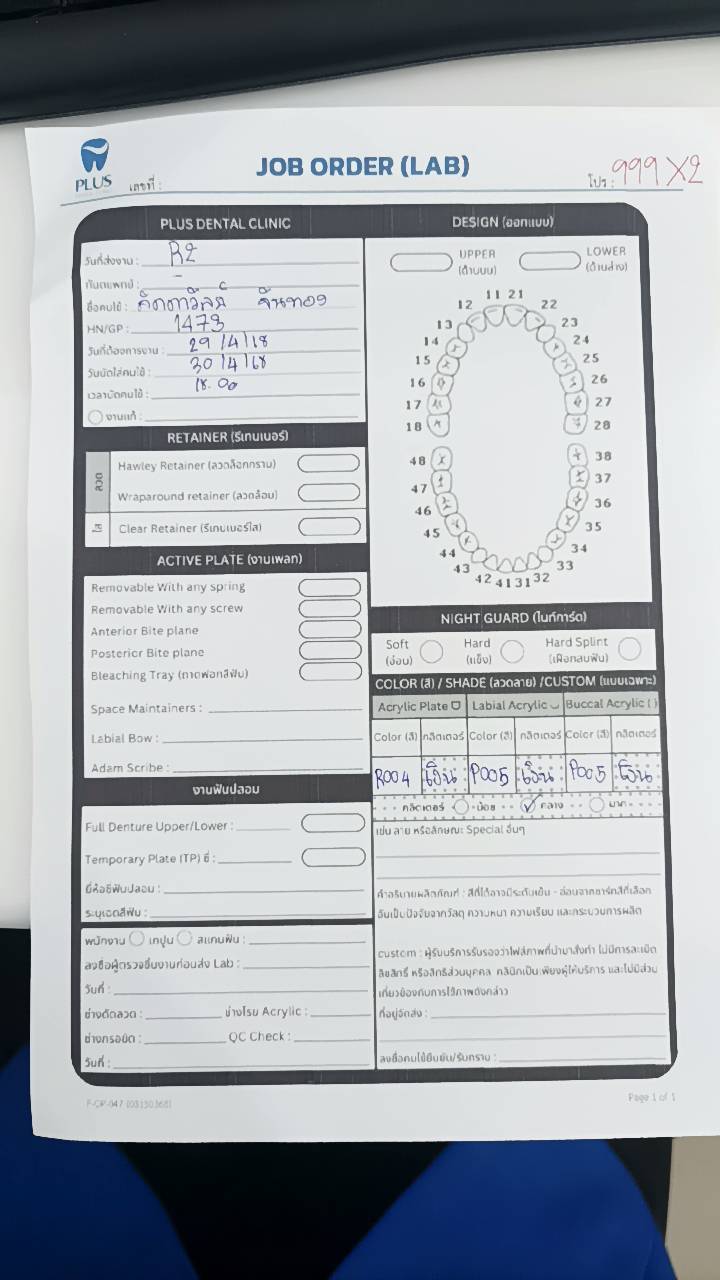 PLUS
DENTAL CLINIC
JOB ORDER (LAB)
เลขที่ :
โปร : 999 X2
PLUS DENTAL CLINIC
วันที่ส่งงาน : R2
ทันตแพทย์ : -
ชื่อคนไข้ :
HN/GP : 1473
วันที่ต้องการงาน : 29/4/68
วันนัดใส่คนไข้ : 30/4/68
เวลานัดคนไข้ : 18.00
งานแก้ :
RETAINER (รีเทนเนอร์)
ลวด
Hawley Retainer (ลวดล็อกกราม)
Wraparound retainer (ลวดล้อม)
ใส
Clear Retainer (รีเทนเนอร์ใส)
ACTIVE PLATE (งานเพลท)
Removable With any spring
Removable With any screw
Anterior Bite plane
Posterior Bite plane
Bleaching Tray (ถาดฟอกสีฟัน)
Space Maintainers :
Labial Bow :
Adam Scribe :
งานฟันปลอม
Full Denture Upper/Lower :
Temporary Plate (TP) ซี่ :
ยี่ห้อซี่ฟันปลอม :
ระบุเฉดสีฟัน :
พนักงาน เทปูน สแกนฟัน :
ลงชื่อผู้ตรวจชิ้นงานก่อนส่ง Lab :
วันที่ :
ช่างดัดลวด : ช่างโรย Acrylic :
ช่างกรอขัด : QC Check :
วันที่ :
DESIGN (ออกแบบ)
UPPER
(ด้านบน)
LOWER
(ด้านล่าง)
11 21
12 22
13 23
14 24
15 25
16 26
17 27
18 28
48 38
47 37
46 36
45 35
44 34
43 33
42 41 31 32
NIGHT GUARD (ไนท์การ์ด)
Soft
(อ่อน)
Hard
(แข็ง)
Hard Splint
(เฝือกสบฟัน)
COLOR (สี) / SHADE (ลวดลาย) /CUSTOM (แบบเฉพาะ)
Acrylic Plate Labial Acrylic Buccal Acrylic ( )
Color (สี) กลิตเตอร์ Color (สี) กลิตเตอร์ Color (สี) กลิตเตอร์
R004 เงิน P005 เงิน P005 เงิน
กลิตเตอร์ น้อย กลาง มาก
เช่น ลาย หรือลักษณะ Special อื่นๆ
คำอธิบายผลิตภัณฑ์ : สีที่ได้อาจมีระดับเข้ม - อ่อนจากชาร์ทสีที่เลือก
อันเป็นปัจจัยจากวัสดุ ความหนา ความเรียบ และกระบวนการผลิต
custom : ผู้รับบริการรับรองว่าไฟล์ภาพที่นำมาสั่งทำ ไม่มีการละเมิด
ลิขสิทธิ์ หรือสิทธิส่วนบุคคล คลินิกเป็นเพียงผู้ให้บริการ และไม่มีส่วน
เกี่ยวข้องกับการใช้ภาพดังกล่าว
ที่อยู่จัดส่ง :
ลงชื่อคนไข้ยืนยัน/รับทราบ :
Page 1 of 1